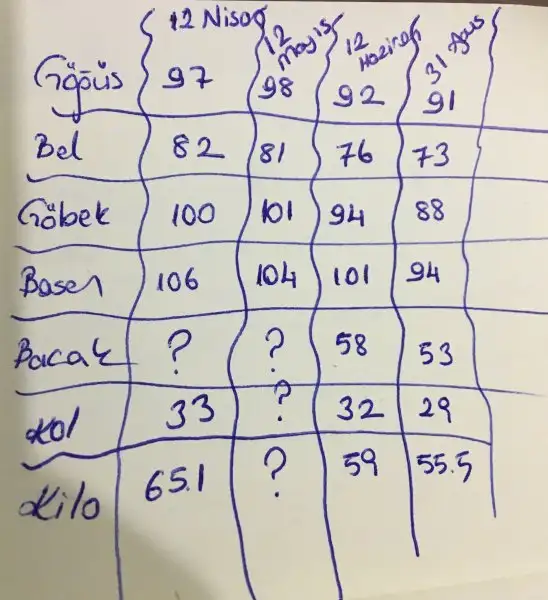 12 Nisan 12 Mayıs 12 Haziran 31 Agus
Göğüs 97 98 92 91
Bel 82 81 76 73
Göbek 100 101 94 88
Basen 106 104 101 94
Bacak ? ? 58 53
Kol 33 ? 32 29
Kilo 65.1 ? 59 55.5